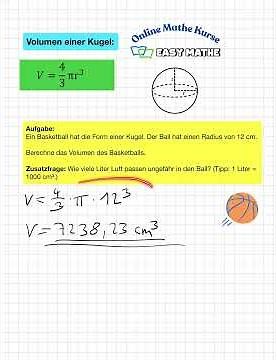 Online Mathe Kurse
EASY MATHE
Volumen einer Kugel:
V = 4/3 πr³
Aufgabe:
Ein Basketball hat die Form einer Kugel. Der Ball hat einen Radius von 12 cm.
Berechne das Volumen des Basketballs.
Zusatzfrage: Wie viele Liter Luft passen ungefähr in den Ball? (Tipp: 1 Liter =
1000 cm³)
V = 4/3 · π · 12³
V = 7238,23 cm³